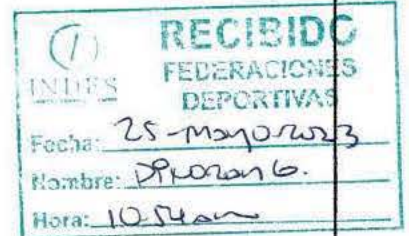 RECIBIDO
INDES
FEDERACIONES
DEPORTIVAS
Fecha: 25-mayo-2023
Nombre:
Hora: 10:54am